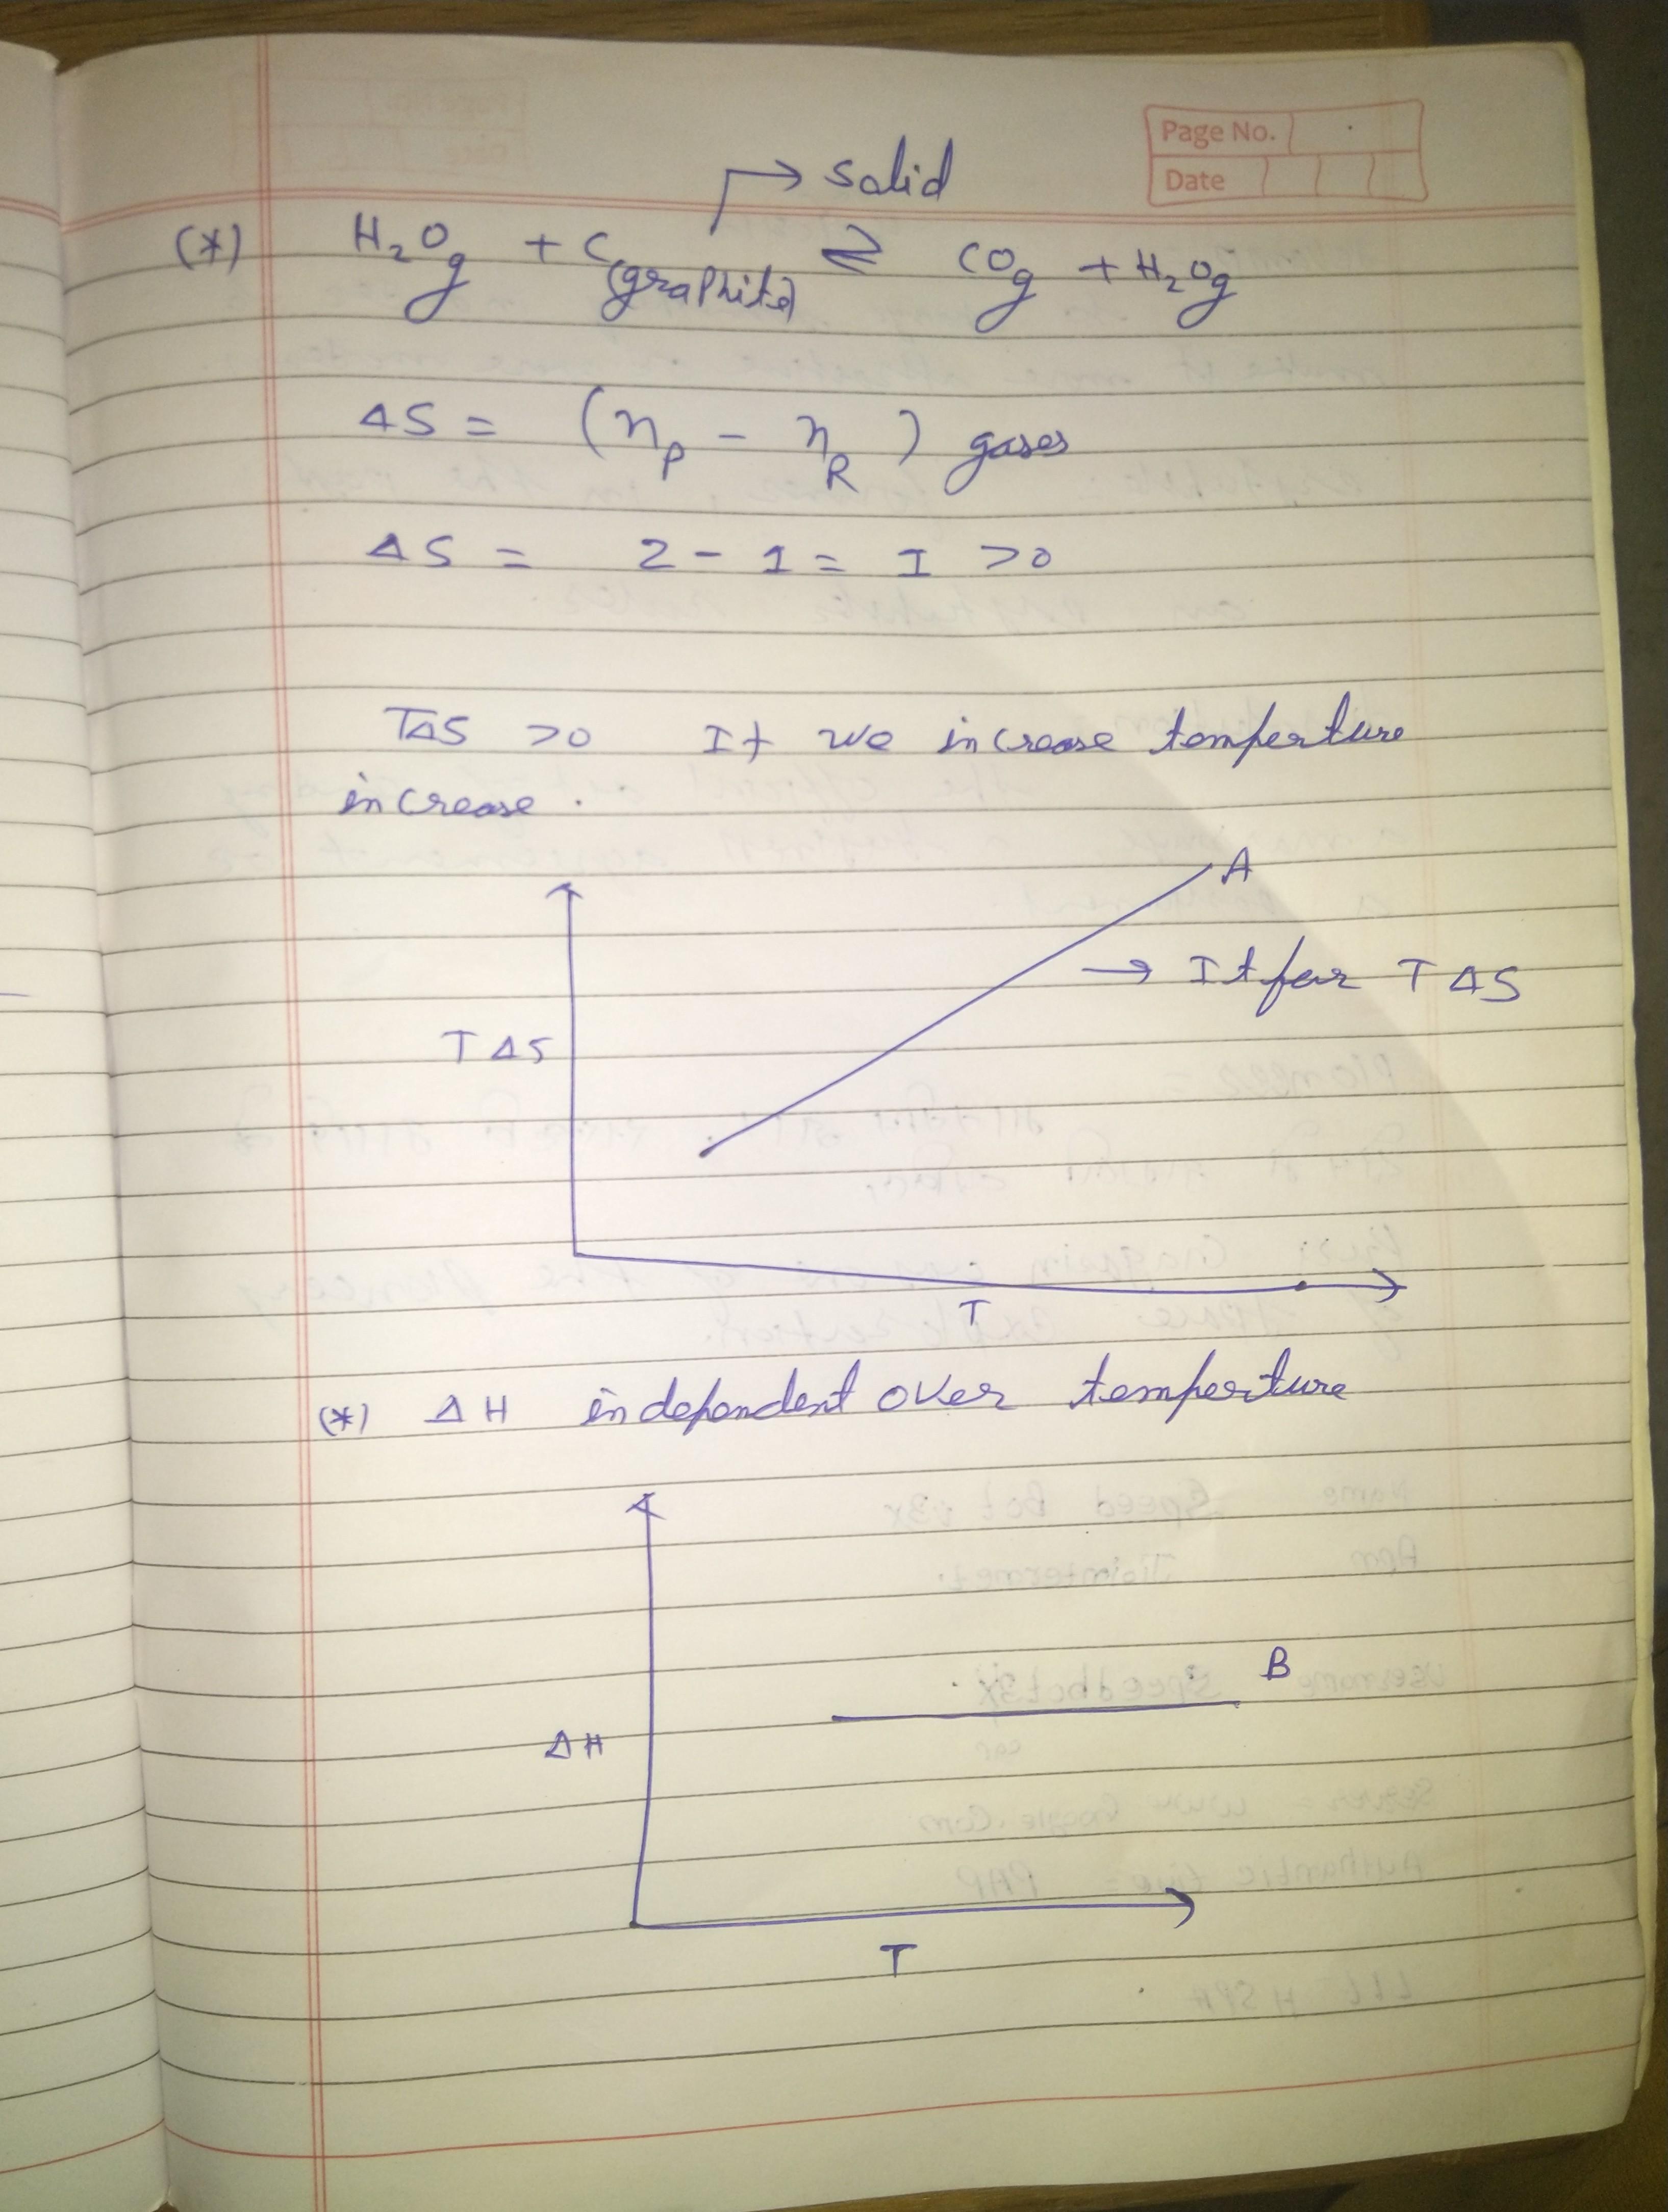 Page No.
Date
→ Solid
(*) H₂Og + C(graphite) ⇌ COg + H₂Og
ΔS = (nP - nR) gases
ΔS = 2 - 1 = I >0
TΔS >0 It we increase temperture
increase.
A
→ It for TΔS
TΔS
T
(*) ΔH independent over temperiture
B
ΔH
T